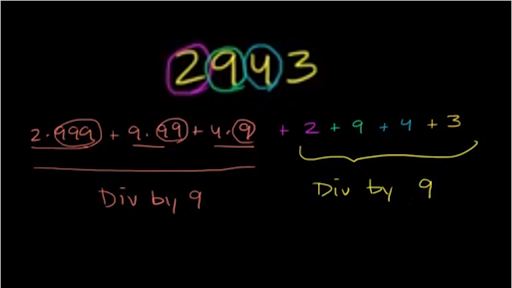 2943
2·999 + 9·99 + 4·9 + 2 + 9 + 4 + 3
Div by 9 Div by 9